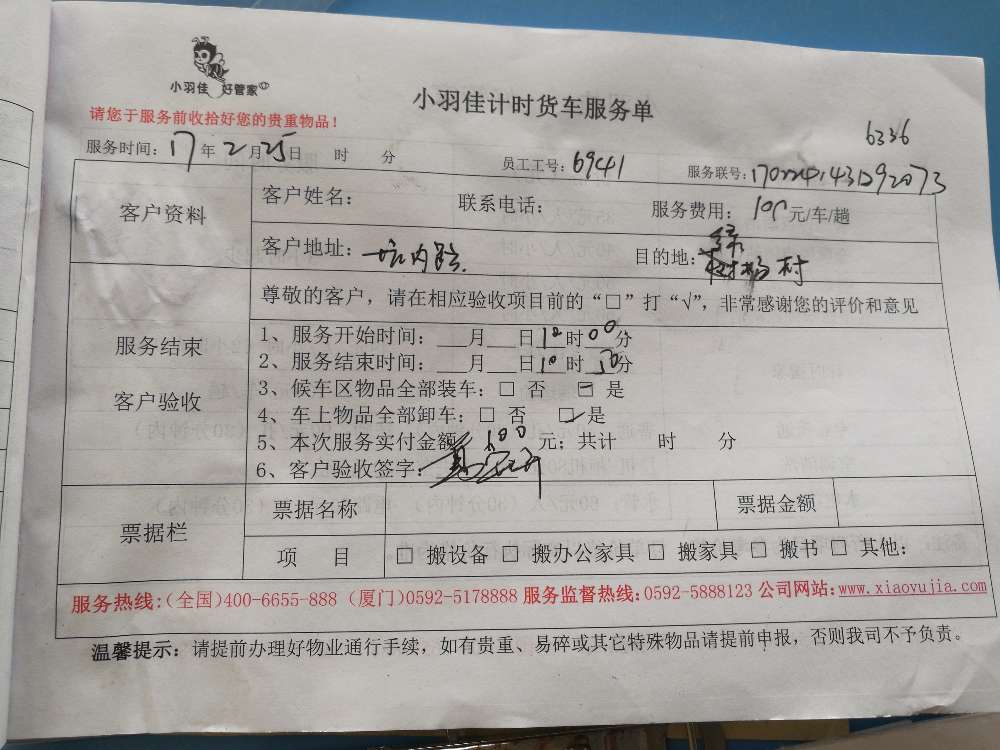 小羽佳 好管家
小羽佳计时货车服务单
6336
请您于服务前收拾好您的贵重物品！
服务时间：17年2月25日 时 分 员工工号：6941 服务联号：
客户资料
客户姓名： 联系电话： 服务费用：100元/车/趟
客户地址：坑内路 目的地：
尊敬的客户，请在相应验收项目前的“□”打“√”，非常感谢您的评价和意见
服务结束
客户验收
1、服务开始时间：___月___日10时00分
2、服务结束时间：___月___日10时50分
3、候车区物品全部装车：□ 否 ☑ 是
4、车上物品全部卸车：□ 否 ☑ 是
5、本次服务实付金额：100元；共计 时 分
6、客户验收签字：
票据栏
票据名称 票据金额
项 目 □ 搬设备 □ 搬办公家具 □ 搬家具 □ 搬书 □ 其他：
服务热线：(全国)400-6655-888 (厦门)0592-5178888 服务监督热线：0592-5888123 公司网站：www.xiaoyujia.com
温馨提示：请提前办理好物业通行手续，如有贵重、易碎或其它特殊物品请提前申报，否则我司不予负责。